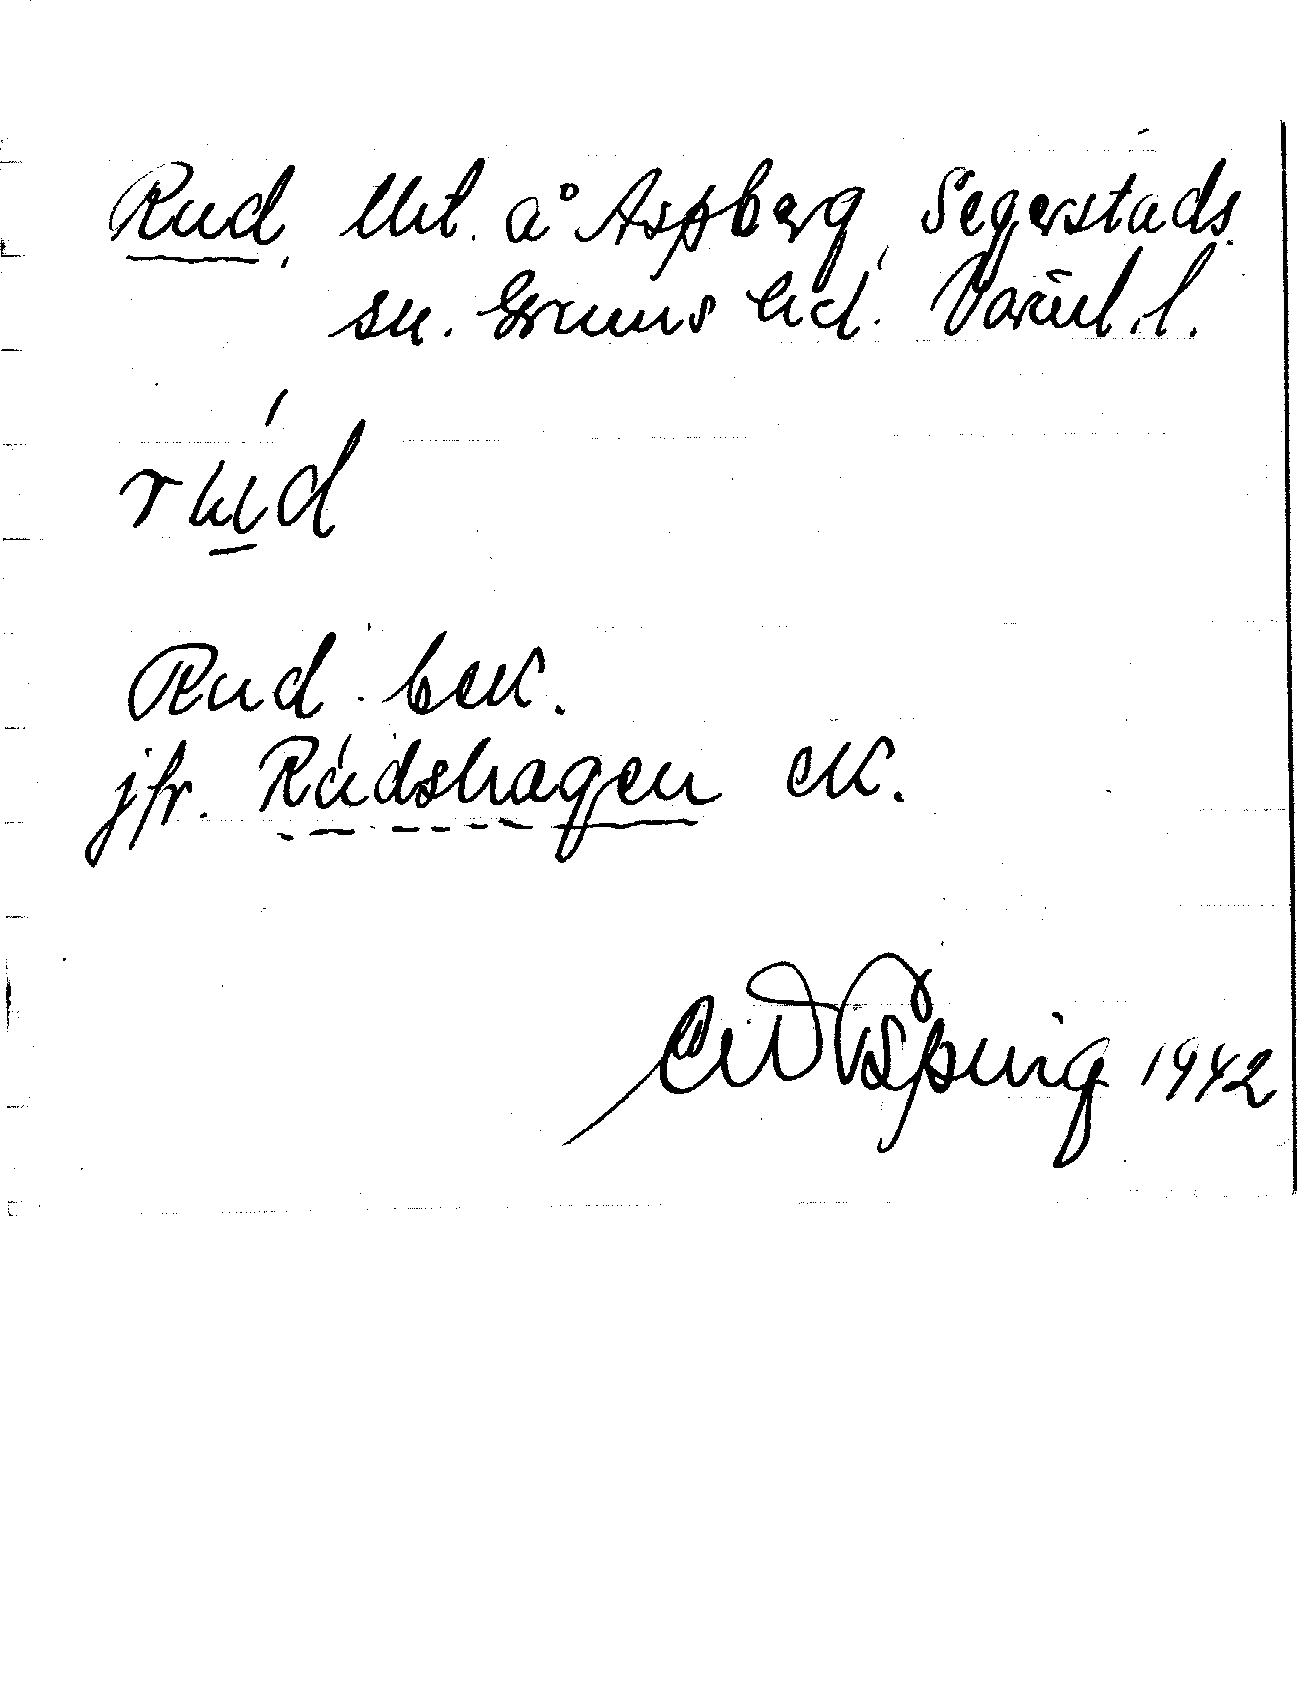 Rud, Utl. å Aspberg, Segerstads
sn. Grums hd. Värml. l.
rúd
Rud bek.
jfr. Rúdshagen ek.
1942